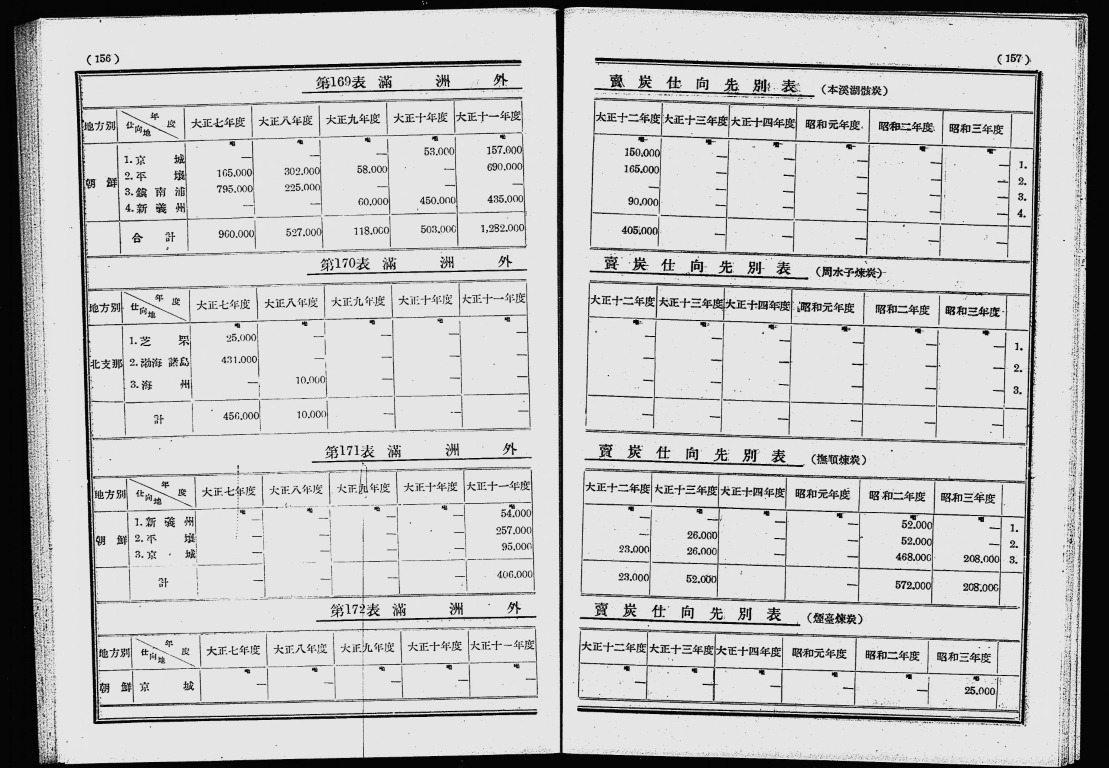 (156)
第169表 滿洲外
地方別 年度 仕向地 大正七年度 大正八年度 大正九年度 大正十年度 大正十一年度
噸 噸 噸 噸 噸
朝鮮
1. 京城 — — — 53.000 157.000
2. 平壤 165.000 302.000 58.000 — 690.000
3. 鎮南浦 795.000 225.000 — — —
4. 新義州 — — 60.000 450.000 435.000
合計 960.000 527.000 118.000 503.000 1,282.000
第170表 滿洲外
地方別 年度 仕向地 大正七年度 大正八年度 大正九年度 大正十年度 大正十一年度
噸 噸 噸 噸 噸
北支那
1. 芝罘 25.000 — — — —
2. 渤海諸島 431.000 — — — —
3. 海州 — 10.000 — — —
計 456.000 10.000 — — —
第171表 滿洲外
地方別 年度 仕向地 大正七年度 大正八年度 大正九年度 大正十年度 大正十一年度
噸 噸 噸 噸 噸
朝鮮
1. 新義州 — — — — 54.000
2. 平壤 — — — — 257.000
3. 京城 — — — — 95.000
計 — — — — 406.000
第172表 滿洲外
地方別 年度 仕向地 大正七年度 大正八年度 大正九年度 大正十年度 大正十一年度
噸 噸 噸 噸 噸
朝鮮 京城 — — — — —
(157)
賣炭仕向先別表 (本溪湖骸炭)
大正十二年度 大正十三年度 大正十四年度 昭和元年度 昭和二年度 昭和三年度
噸 噸 噸 噸 噸 噸
150.000 — — — — — 1.
165.000 — — — — — 2.
— — — — — — 3.
90.000 — — — — — 4.
405.000 — — — — —
賣炭仕向先別表 (周水子煉炭)
大正十二年度 大正十三年度 大正十四年度 昭和元年度 昭和二年度 昭和三年度
噸 噸 噸 噸 噸 噸
— — — — — — 1.
— — — — — — 2.
— — — — — — 3.
— — — — — —
賣炭仕向先別表 (撫順煉炭)
大正十二年度 大正十三年度 大正十四年度 昭和元年度 昭和二年度 昭和三年度
噸 噸 噸 噸 噸 噸
— — — — 52.000 — 1.
— 26.000 — — 52.000 — 2.
23.000 26.000 — — 468.000 208.000 3.
23.000 52.000 — — 572.000 208.000
賣炭仕向先別表 (煙臺煉炭)
大正十二年度 大正十三年度 大正十四年度 昭和元年度 昭和二年度 昭和三年度
噸 噸 噸 噸 噸 噸
— — — — — 25.000